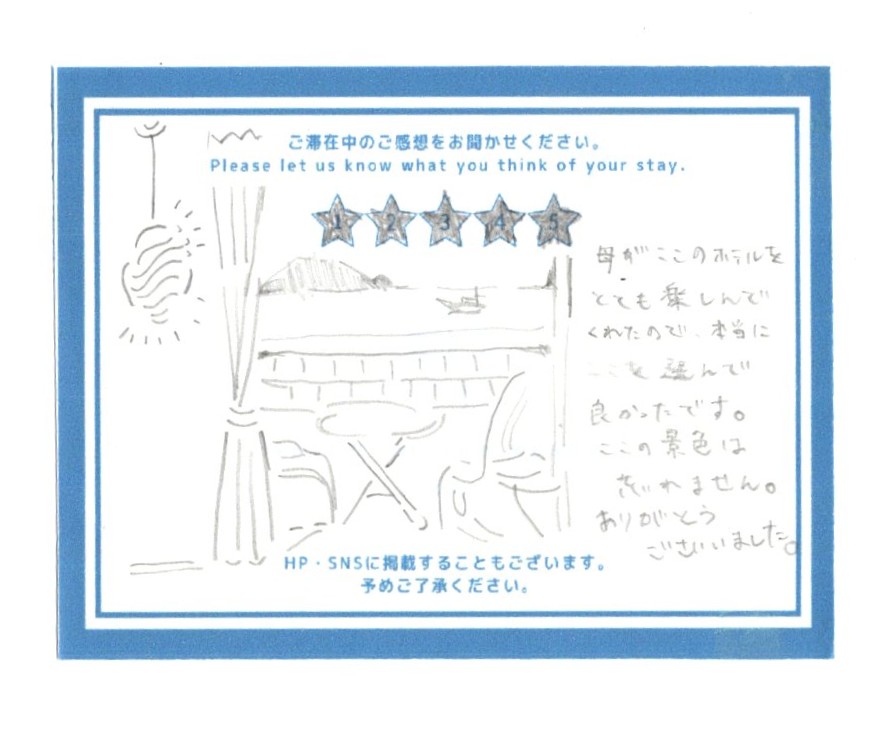 ご滞在中のご感想をお聞かせください。
Please let us know what you think of your stay.
1 2 3 4 5
母がここのホテルを
とても楽しんで
くれたので、本当に
ここを選んで
良かったです。
ここの景色は
忘れません。
ありがとう
ございました。
HP・SNSに掲載することもございます。
予めご了承ください。